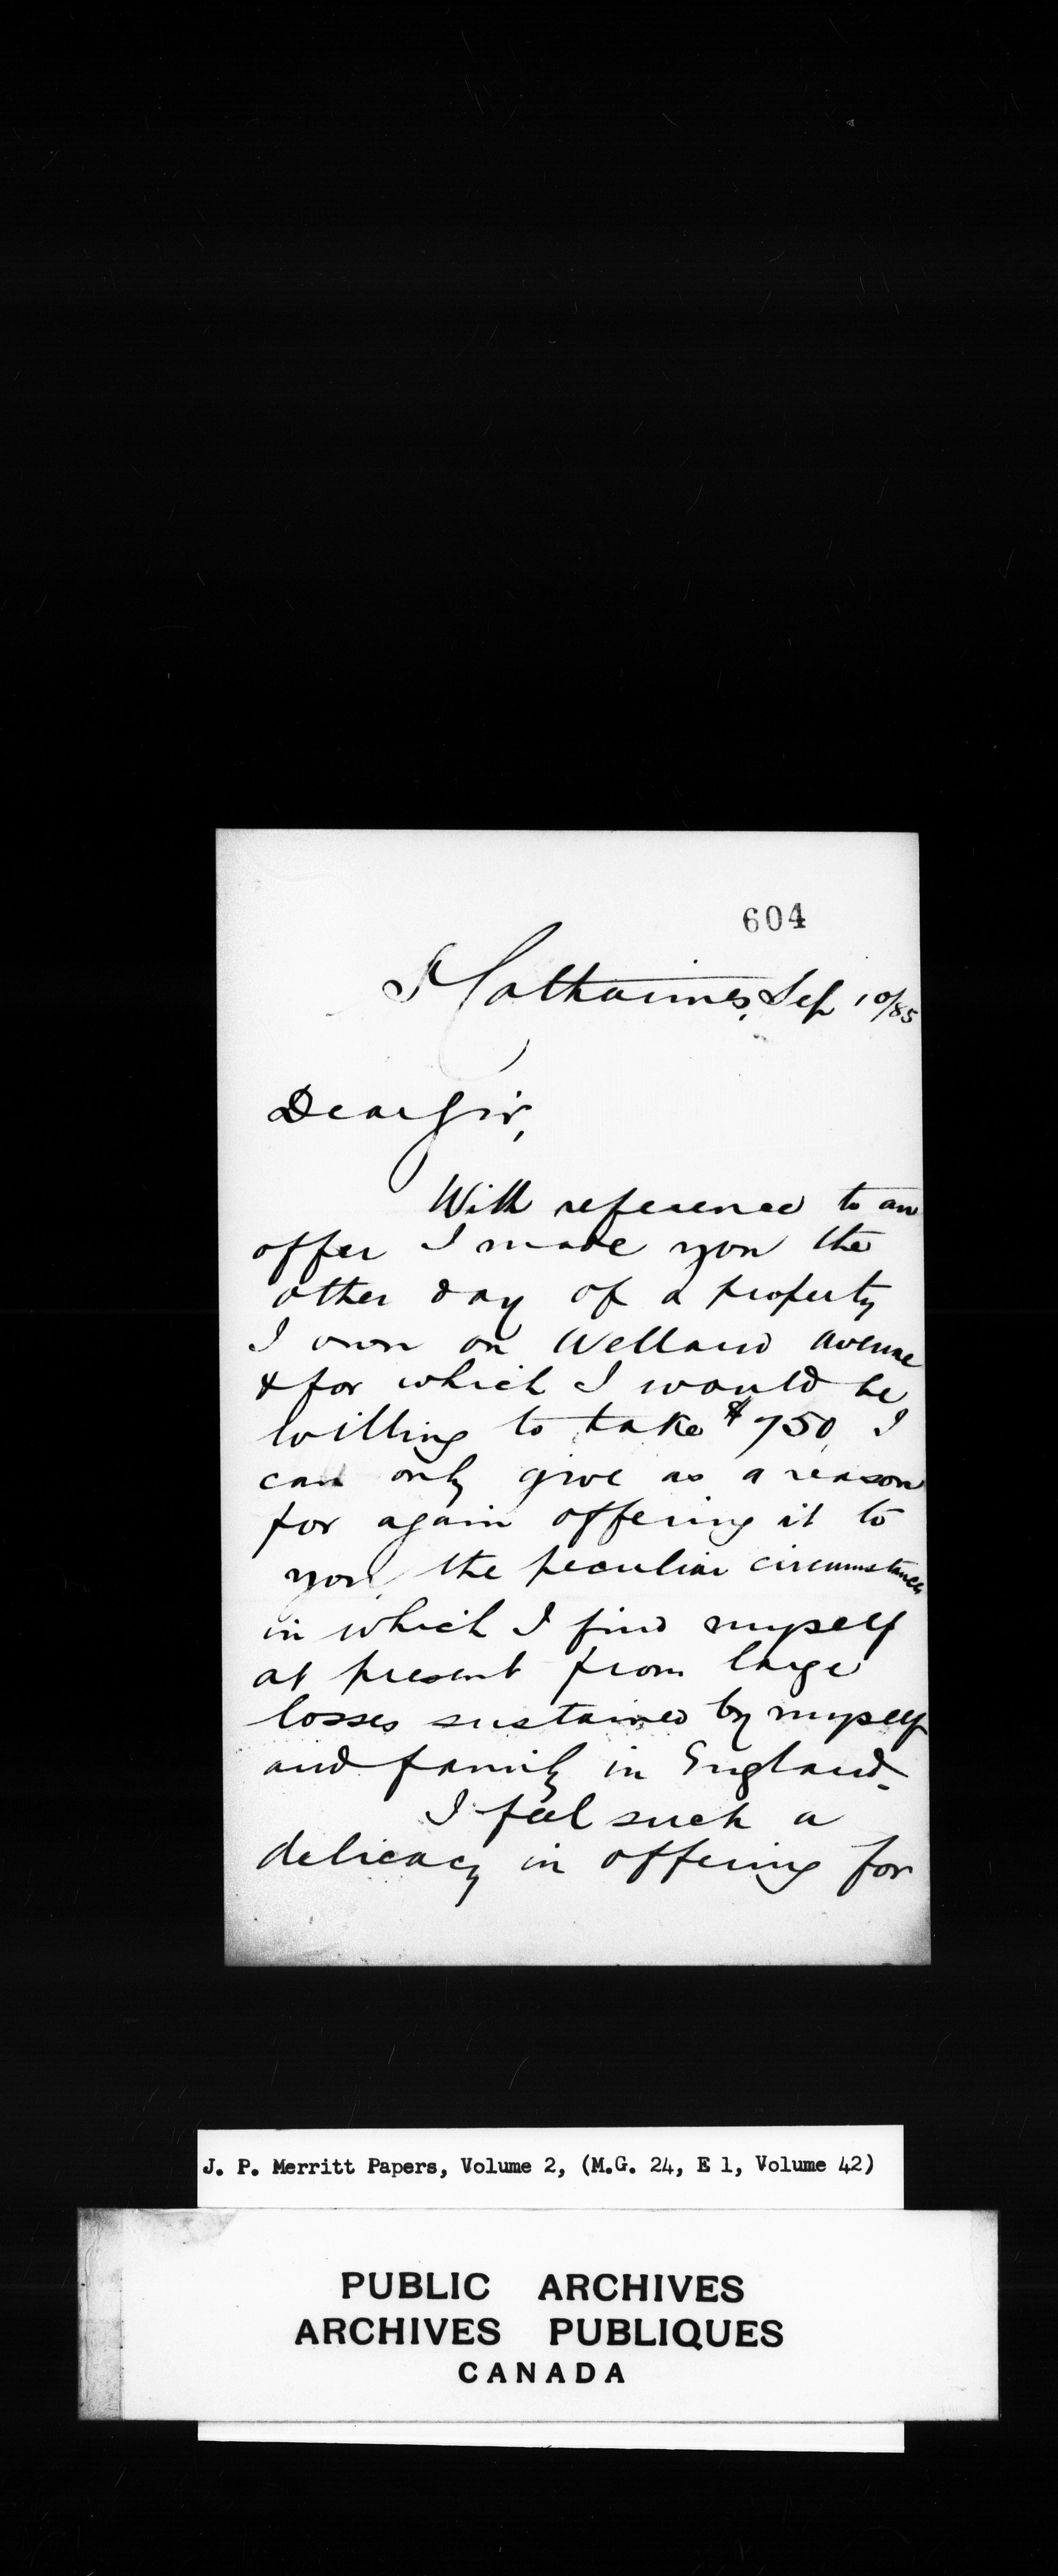 604
St Catharines, Sep 10/85
Dear Sir,
With reference to an
offer I made you the
other day of a property
I own on Welland Avenue
& for which I would be
willing to take $750, I
can only give as a reason
for again offering it to
you the peculiar circumstances
in which I find myself
at present from large
losses sustained by myself
and family in England.
I feel such a
delicacy in offering for
J. P. Merritt Papers, Volume 2, (M.G. 24, E 1, Volume 42)
PUBLIC ARCHIVES
ARCHIVES PUBLIQUES
CANADA